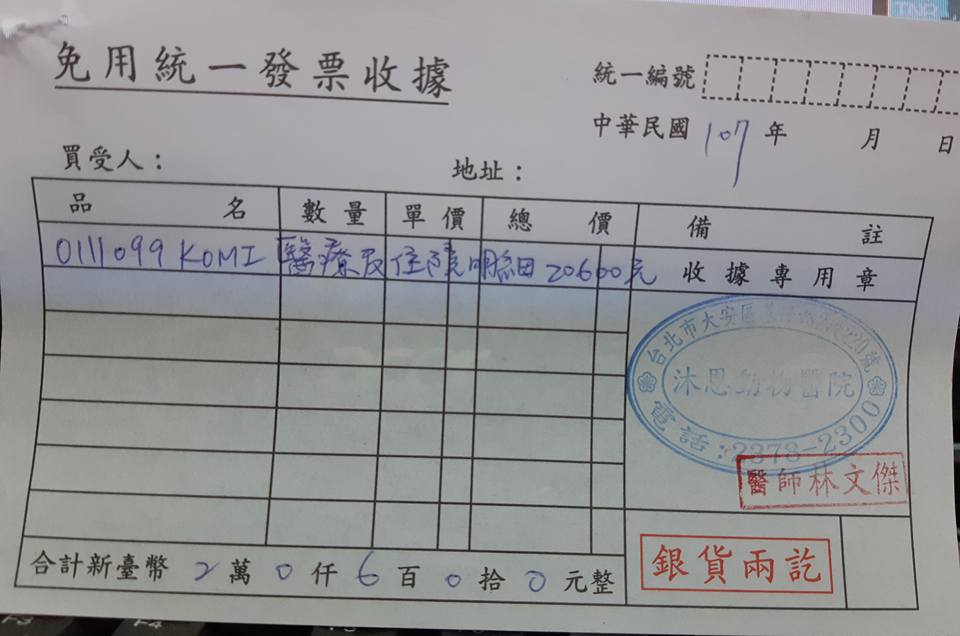 TNR
免用統一發票收據
統一編號
中華民國 107 年 月 日
買受人： 地址：
品名 數量 單價 總價 備註
0111099 KOMI 醫療及住院明細 20600元 收據專用章
台北市大安區 220號
沐恩動物醫院
電話:2378-2300
醫師林文傑
合計新臺幣 2 萬 0 仟 6 百 0 拾 0 元整
銀貨兩訖